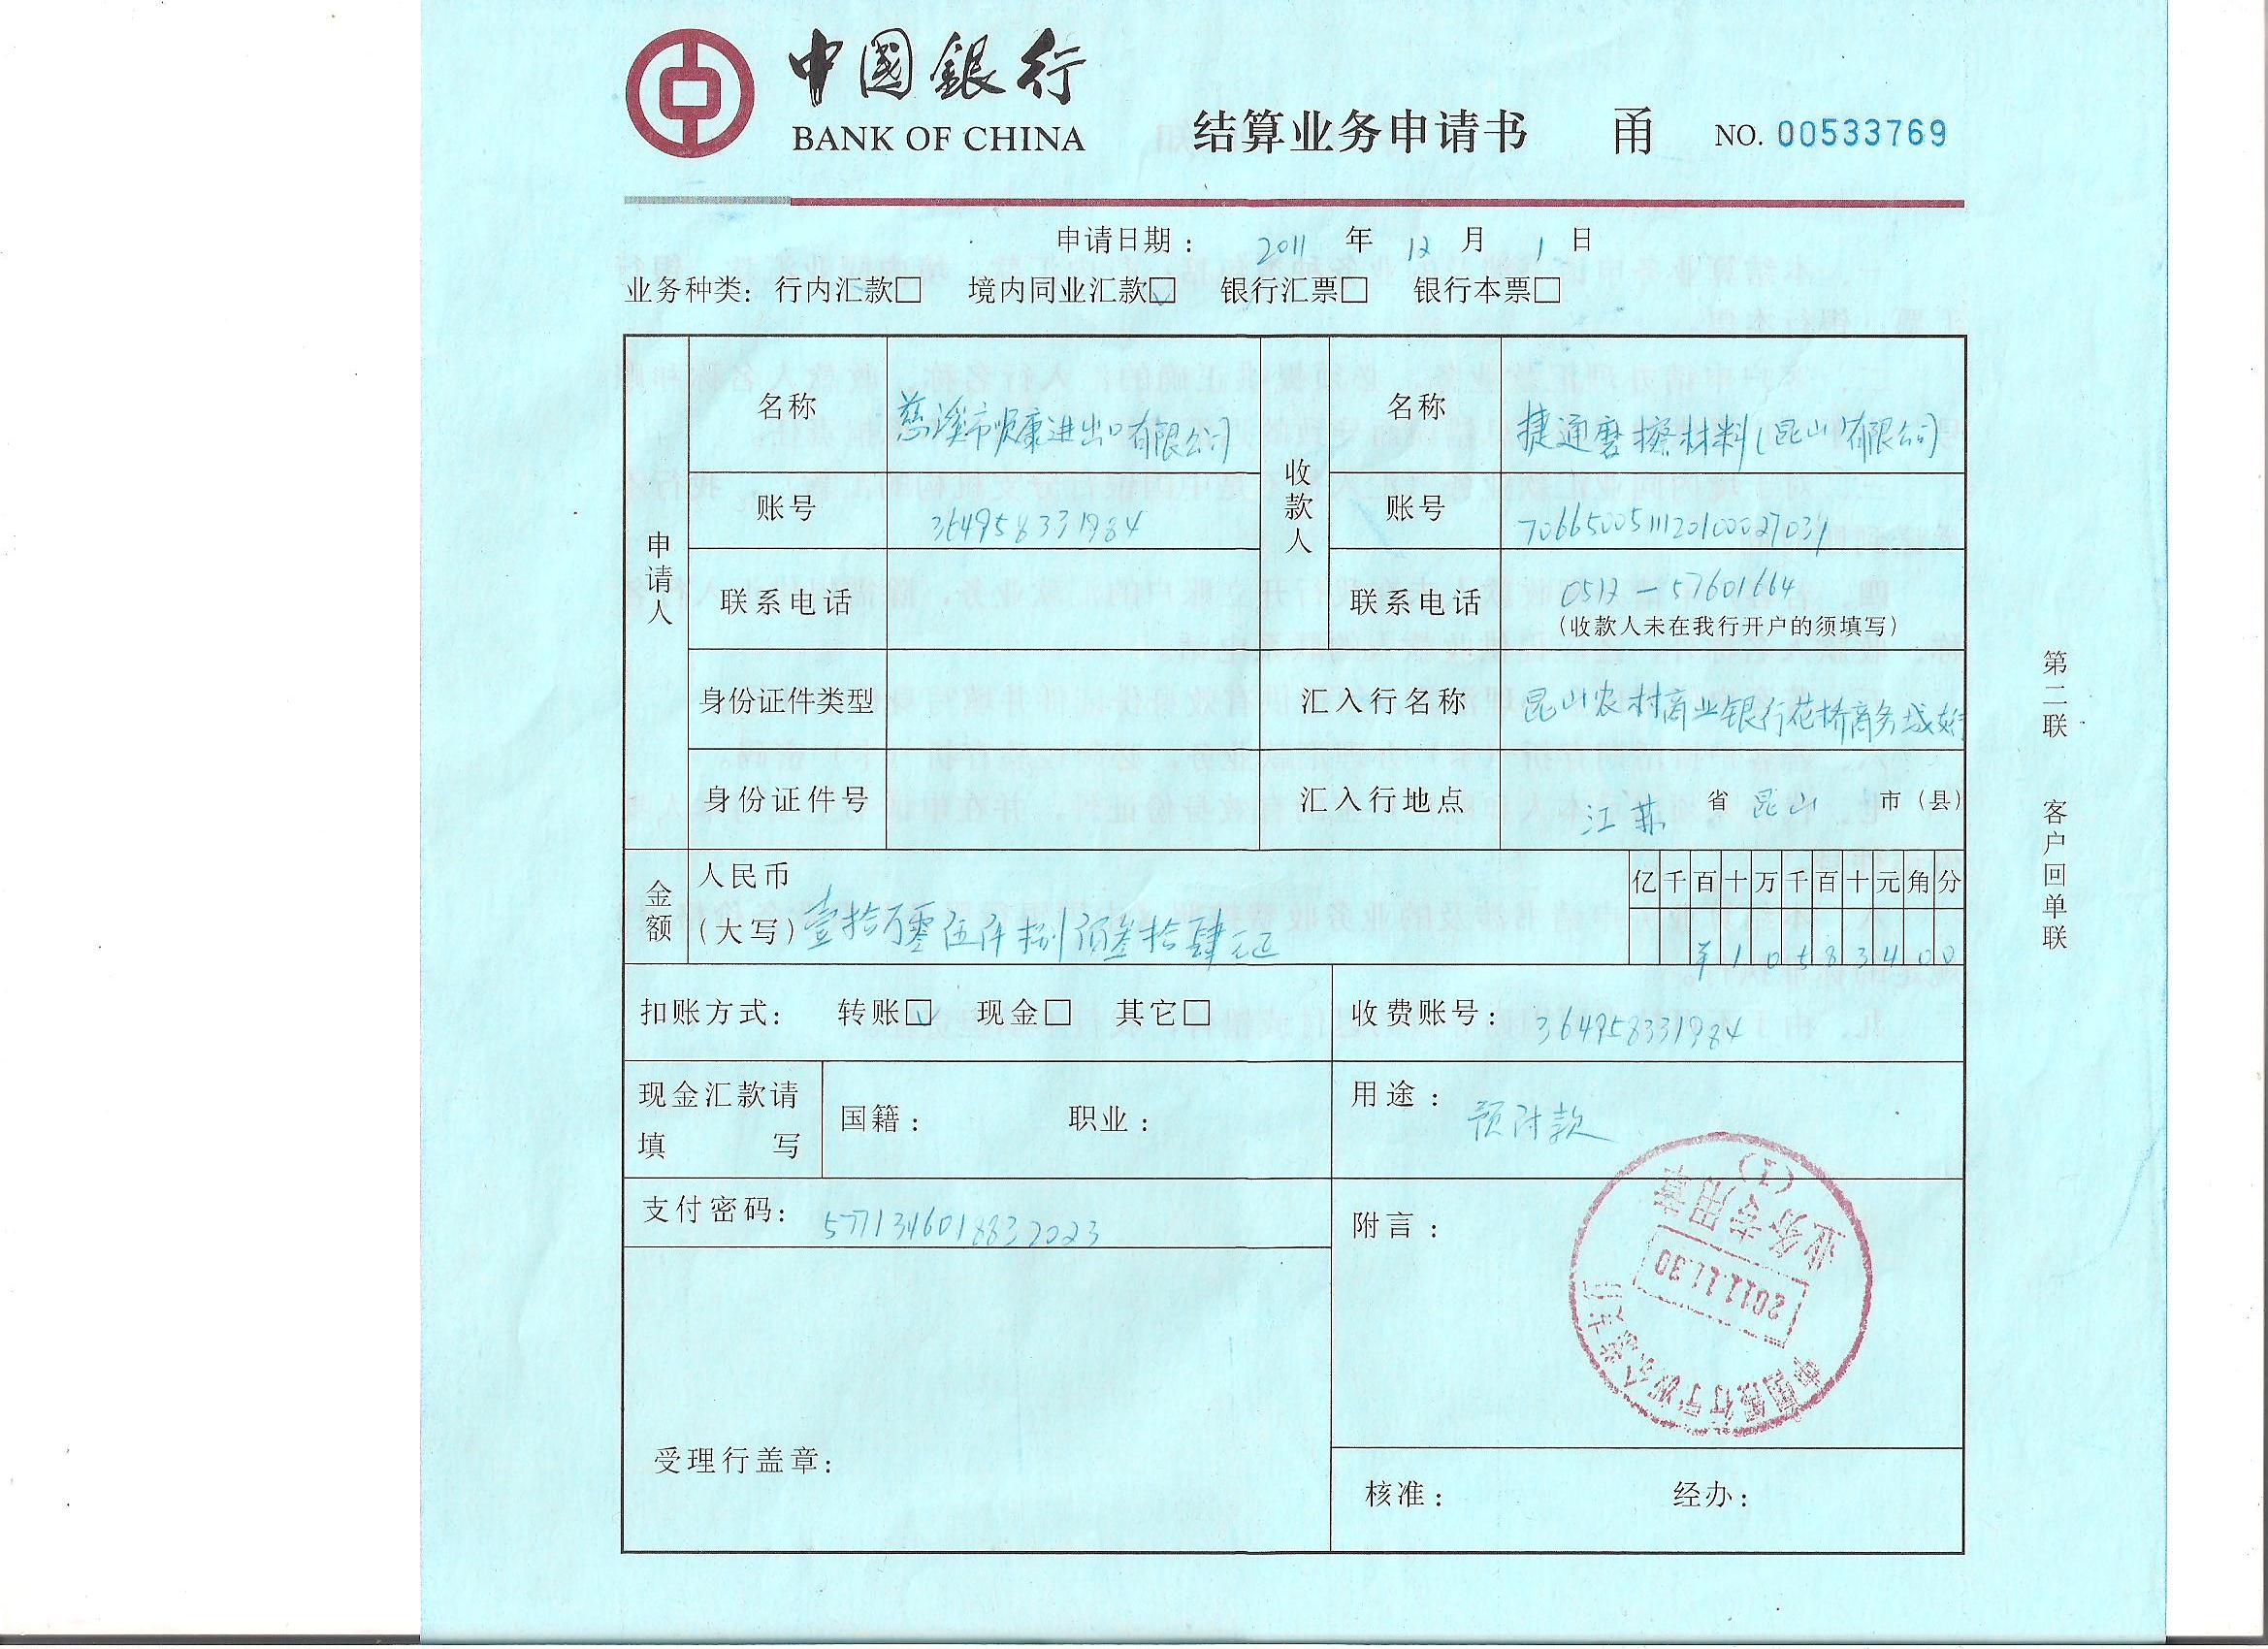 中國銀行
BANK OF CHINA
结算业务申请书 甬 NO. 00533769
申请日期： 2011 年 12 月 1 日
业务种类：行内汇款□ 境内同业汇款☑ 银行汇票□ 银行本票□
申请人
名称 慈溪市顺康进出口有限公司
账号 364958331984
联系电话
身份证件类型
身份证件号
收款人
名称 捷通磨擦材料(昆山)有限公司
账号 7066500511120100027039
联系电话 0512-57601664
(收款人未在我行开户的须填写)
汇入行名称 昆山农村商业银行花桥商务城支行
汇入行地点 江苏 省 昆山 市(县)
金额
人民币
(大写) 壹拾万零伍仟捌佰叁拾肆元正
亿 千 百 十 万 千 百 十 元 角 分
¥ 1 0 5 8 3 4 0 0
扣账方式： 转账☑ 现金□ 其它□
收费账号： 364958331984
现金汇款请
填 写
国籍： 职业：
用途： 预付款
支付密码： 5771346018832023
附言：
受理行盖章：
核准： 经办：
第二联 客户回单联
中国银行
2011.11.30
业务专用章